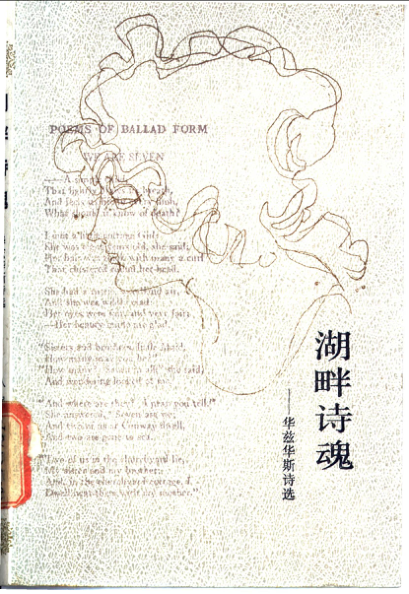 POEMS OF BALLAD FORM
WE ARE SEVEN
—A simple
That lightly draws its breath,
And feels its life in every limb,
What should it know of death?
I met a little cottage Girl:
She was eight years old, she said;
Her hair was thick with many a curl
That clustered round her head.
She had a rustic, woodland air,
And she was wildly clad:
Her eyes were fair, and very fair;
—Her beauty made me glad.
"Sisters and brothers, little Maid,
How many may you be?"
"How many? Seven in all," she said,
And wondering looked at me.
"And where are they? I pray you tell."
She answered, "Seven are we;
And two of us at Conway dwell,
And two are gone to sea.
"Two of us in the churchyard lie,
My sister and my brother;
And, in the churchyard cottage, I
Dwell near them with my mother."
湖畔诗魂
——华兹华斯诗选